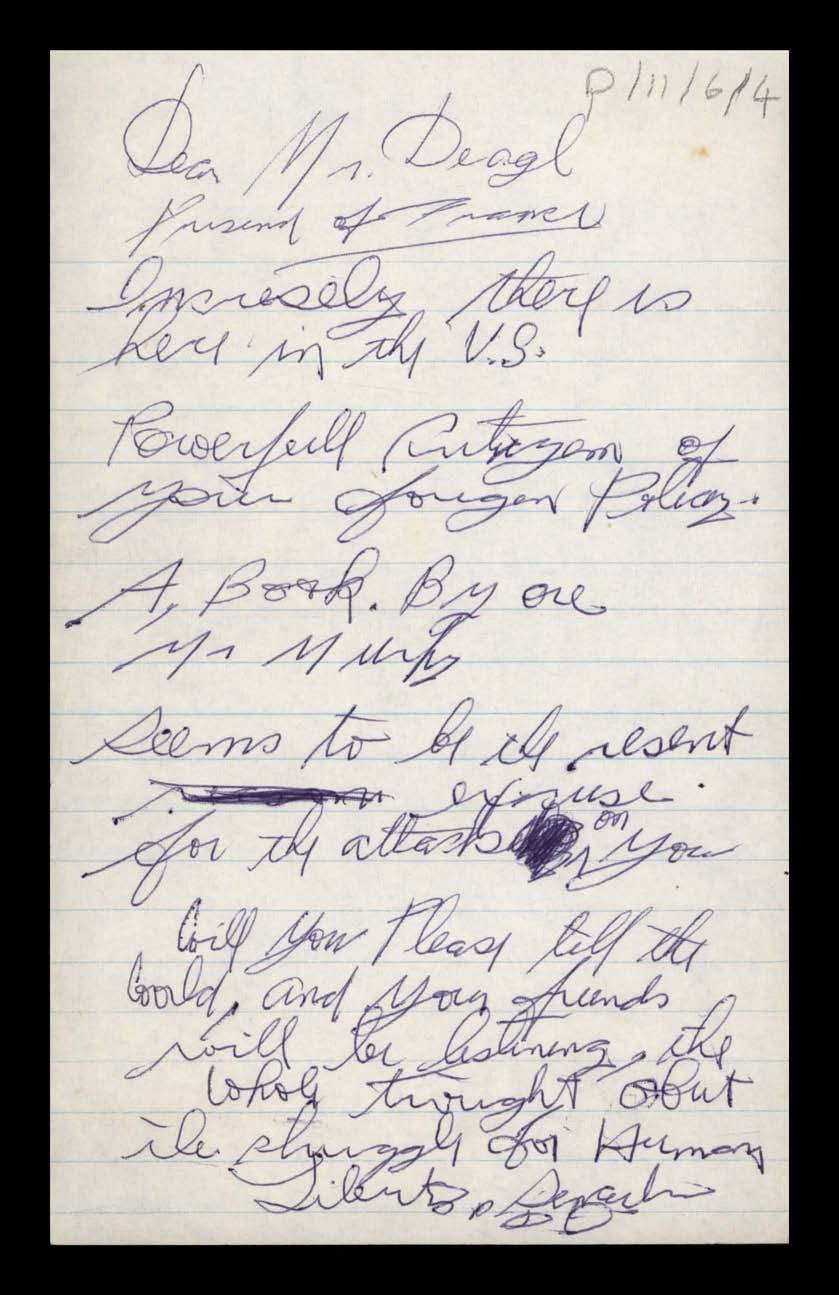 P/11/6/4
Dear Mr. Deagl
Presend of France
Incresely there is
here in the U.S.
Powerfull of
your Policy.
A, Book. By one
Mr Murphy
seems to be the resent
exscuse
for the attacks on you
Will you Please tell the
World, and your friends
will be listining, the
whole trought about
the struggle for Human
Liberty,